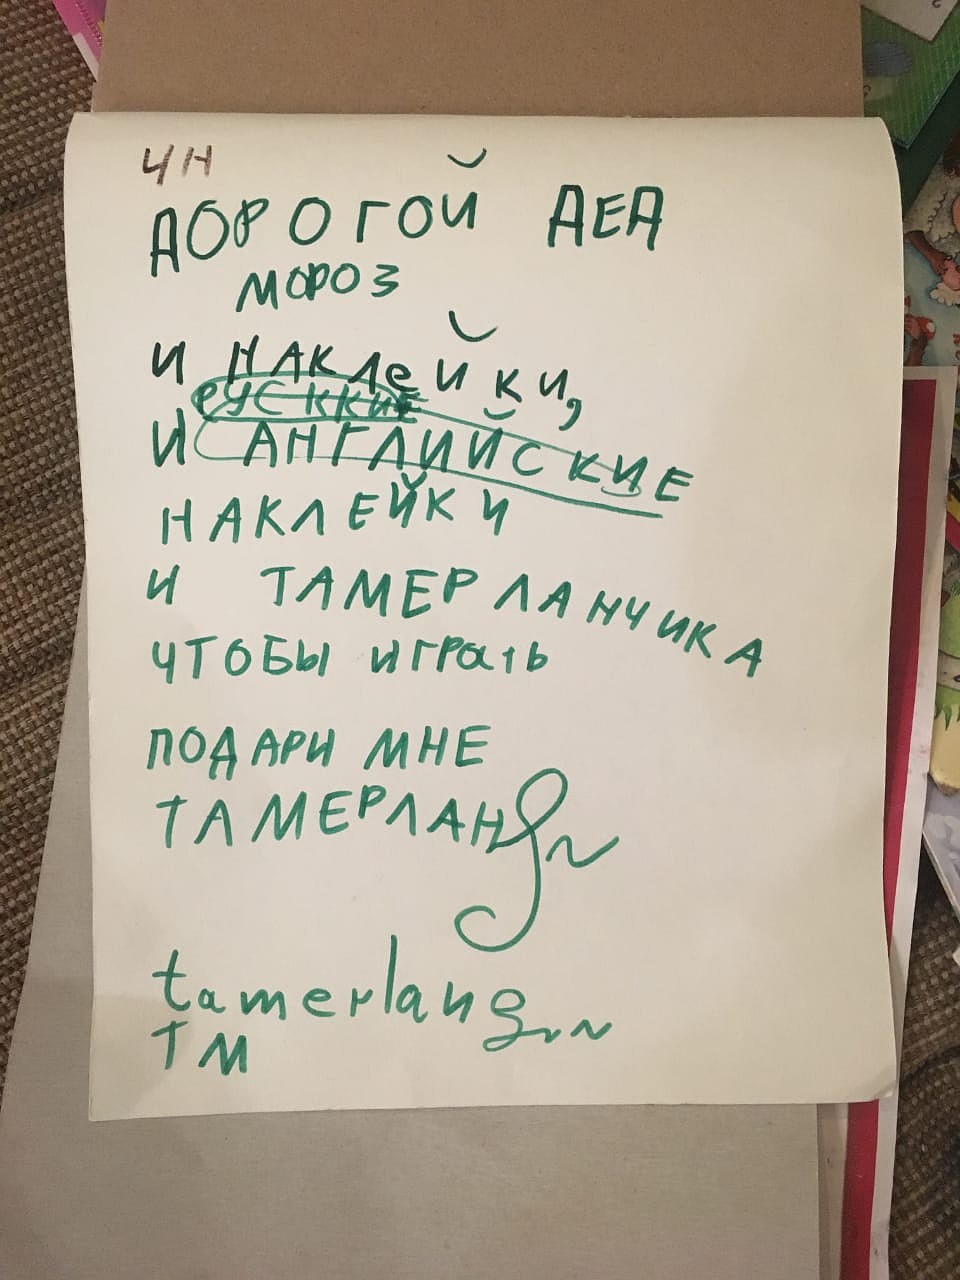 ЧН
ДОРОГОЙ ДЕД
МОРОЗ
И НАКЛеЙКИ,
РУСККИЕ
И АНГЛИЙСКИЕ
НАКЛЕЙКИ
И ТАМЕРЛАНЧИКА
ЧТОБЫ ИГРать
ПОДАРИ МНЕ
ТАМЕРЛАН
tamerlan
ТМ